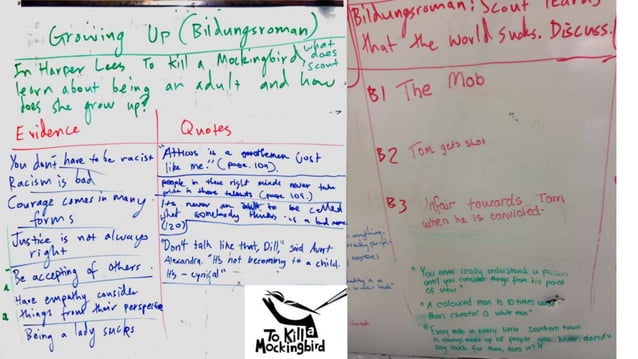 Growing Up (Bildungsroman)
In Harper Lees To Kill a Mockingbird, what does scout
learn about being an adult and how
does she grow up?
Evidence
You don't have to be racist
Racism is bad
Courage comes in many
forms
Justice is not always
right
Be accepting of others.
Have empathy consider
things from their perspective
Being a lady sucks
Quotes
"Atticus is a gentleman just
like me!" (page 109)
people in there right minds never take
pride in there talents (page 109.)
its never an to be called
what somebody thinks is a bad name.
(120)
"Don't talk like that, Dill," said Aunt
Alexandra. "It's not becoming to a child.
It's - cynical"
To Kill a
Mockingbird
Bildungsroman: Scout learns
that the world sucks. Discuss.
B1 The Mob
B2 Tom gets shot
B3 Unfair towards Tom
when he is convicted.
"You never really understand a person
until you consider things from his point
of view"
"A coloured man is 10 times worse
than cheatin' a white man"
Every mob in every little Southern town
is always made up of people you know doesn't
say much for them, does it?